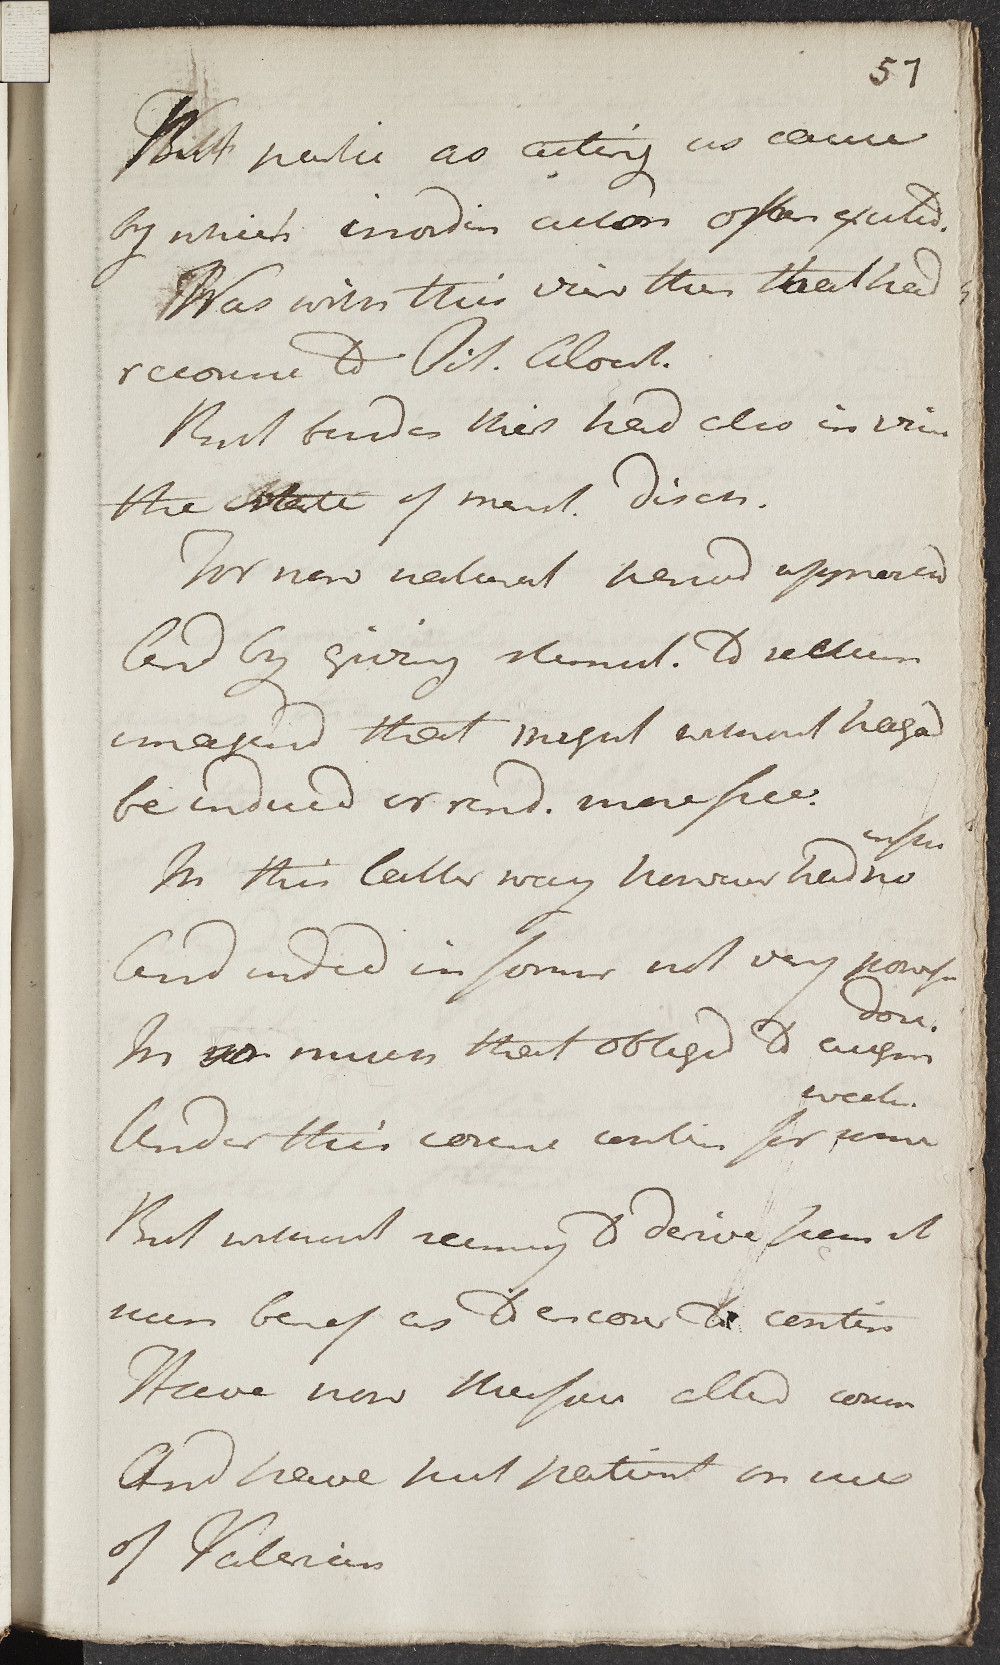 57
But partic as acting as cause
by which inordin action often excited.
Was with this view then that had
recourse to Pil. Aloet.
But besides this had also in view
the state of menst. disch.
For now natural period approached
And by giving stimul. to rectum
imagind that might without hazad
be induced or rend. more free.
In this latter way however had no
effect
And indeed in former not very powerf
In so much that obliged to augm
dose.
Under this course contin for some
weeks.
But without seeming to derive from it
such benef as to encour to contin
Have now therefore alterd course
And have put patient on use
of Valerian